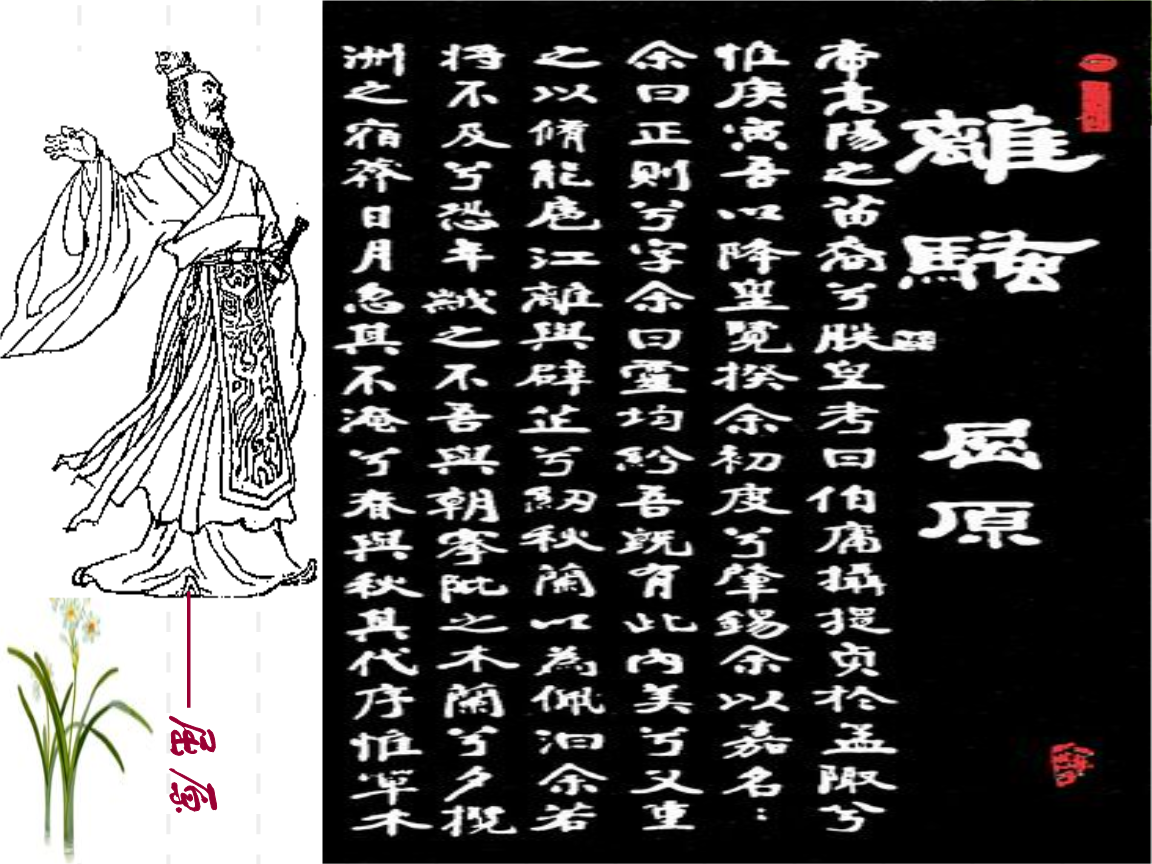 離騷 屈原
帝高陽之苗裔兮朕皇考曰伯庸攝提貞於孟陬兮
惟庚寅吾以降皇覽揆余初度兮肇錫余以嘉名：
余曰正則兮字余曰靈均紛吾既有此內美兮又重
之以脩能扈江離與辟芷兮紉秋蘭以為佩汩余若
将不及兮恐年歲之不吾與朝搴阰之木蘭兮夕攬
洲之宿莽日月忽其不淹兮春與秋其代序惟草木
——屈原